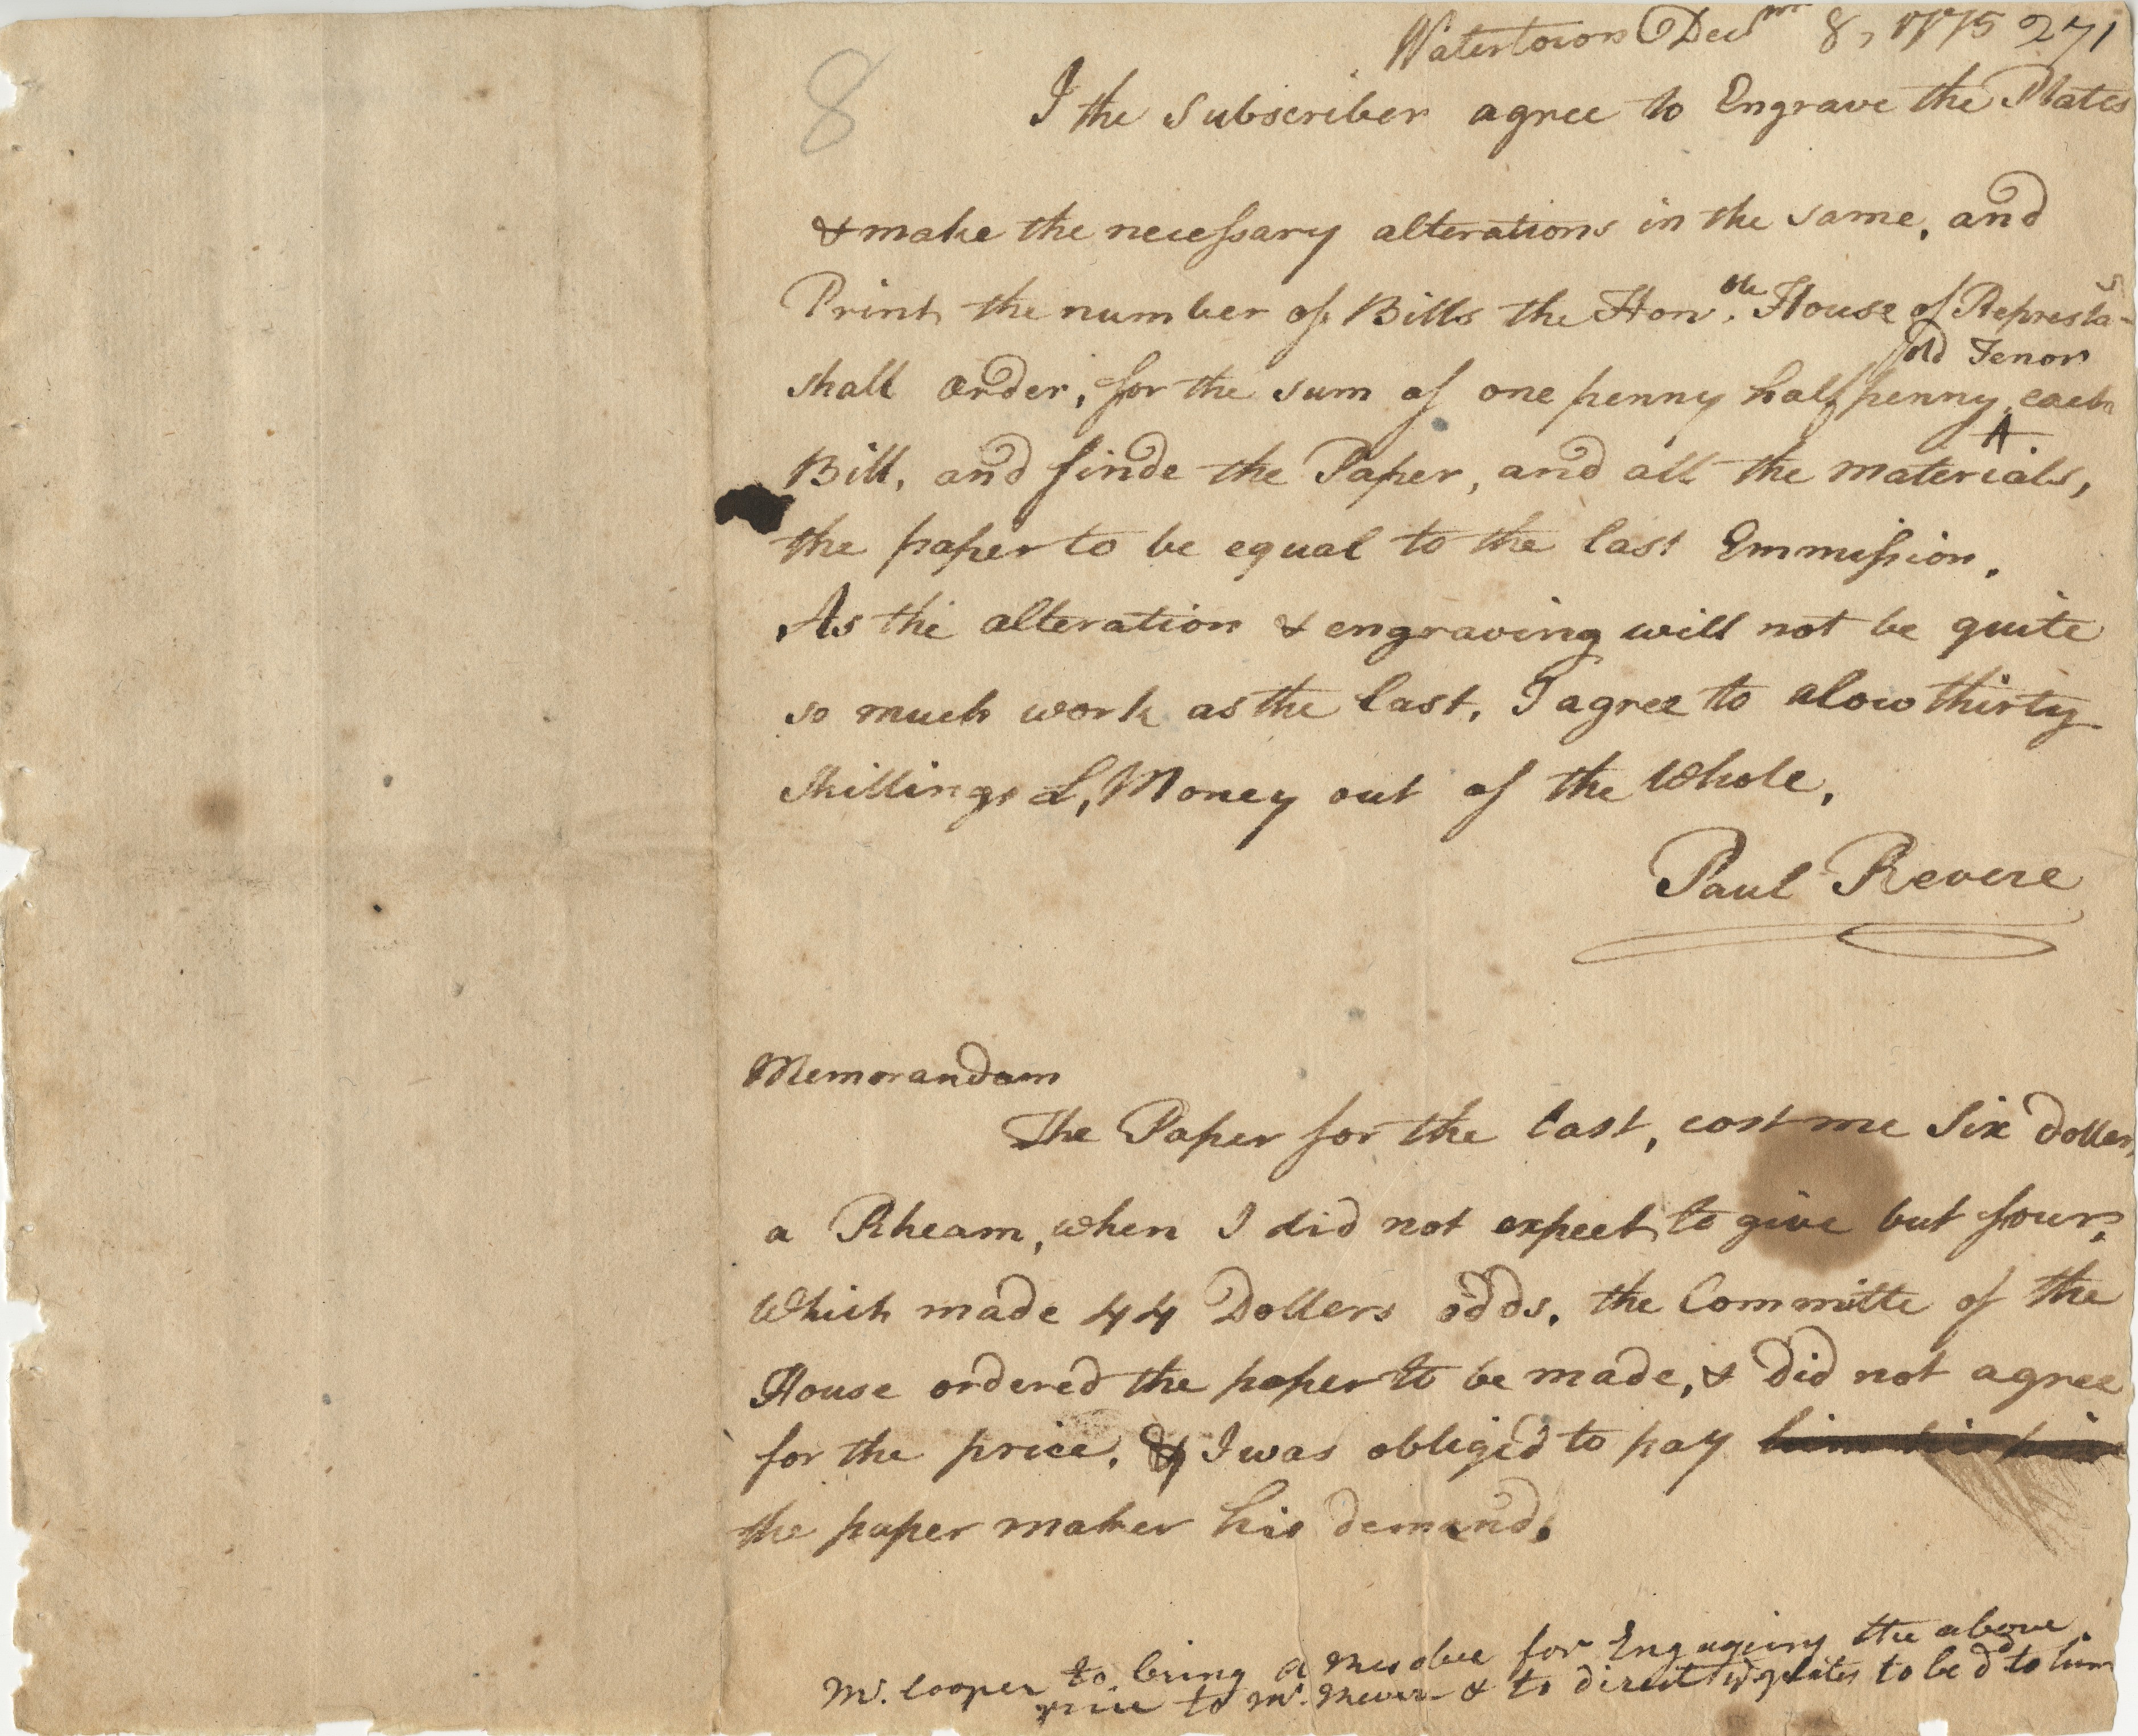 Watertown Decmr 8, 1775 271
8
I the Subscriber agree to Engrave the Plates
& make the necessary alterations in the same, and
Print the number of Bills the Honble. House of Represtas-
old Tenor
shall order, for the sum of one penny half penny ^ each
Bill, and finde the Paper, and all the materials,
the paper to be equal to the last Emmission.
As the alteration & engraving will not be quite
so much work as the last, I agree to alow thirty
Shillings L, Money out of the Whole.
Paul Revere
Memorandom
The Paper for the last, cost me Six Dollers
a Rheam, when I did not expect to give but four,
Which made 44 Dollers odds. the Committe of the
House ordered the paper to be made, & Did not agree
for the price. & I was obliged to pay
the paper maker his demand.
Mr. Cooper to bring a Resolve for Engageing the above
to Mr. Revere & to direct plates to be dd to him